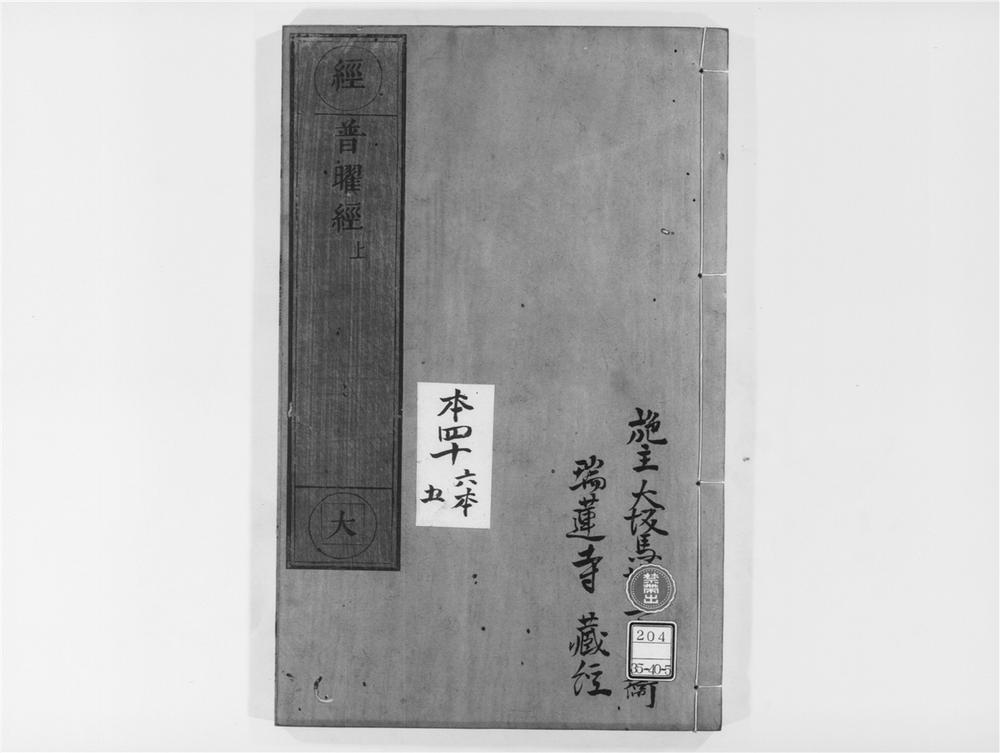 經
普曜經 上
大
本四十
六本
五
施主 大坂馬
瑞蓮寺 藏經
禁帯出
204
35-40-5